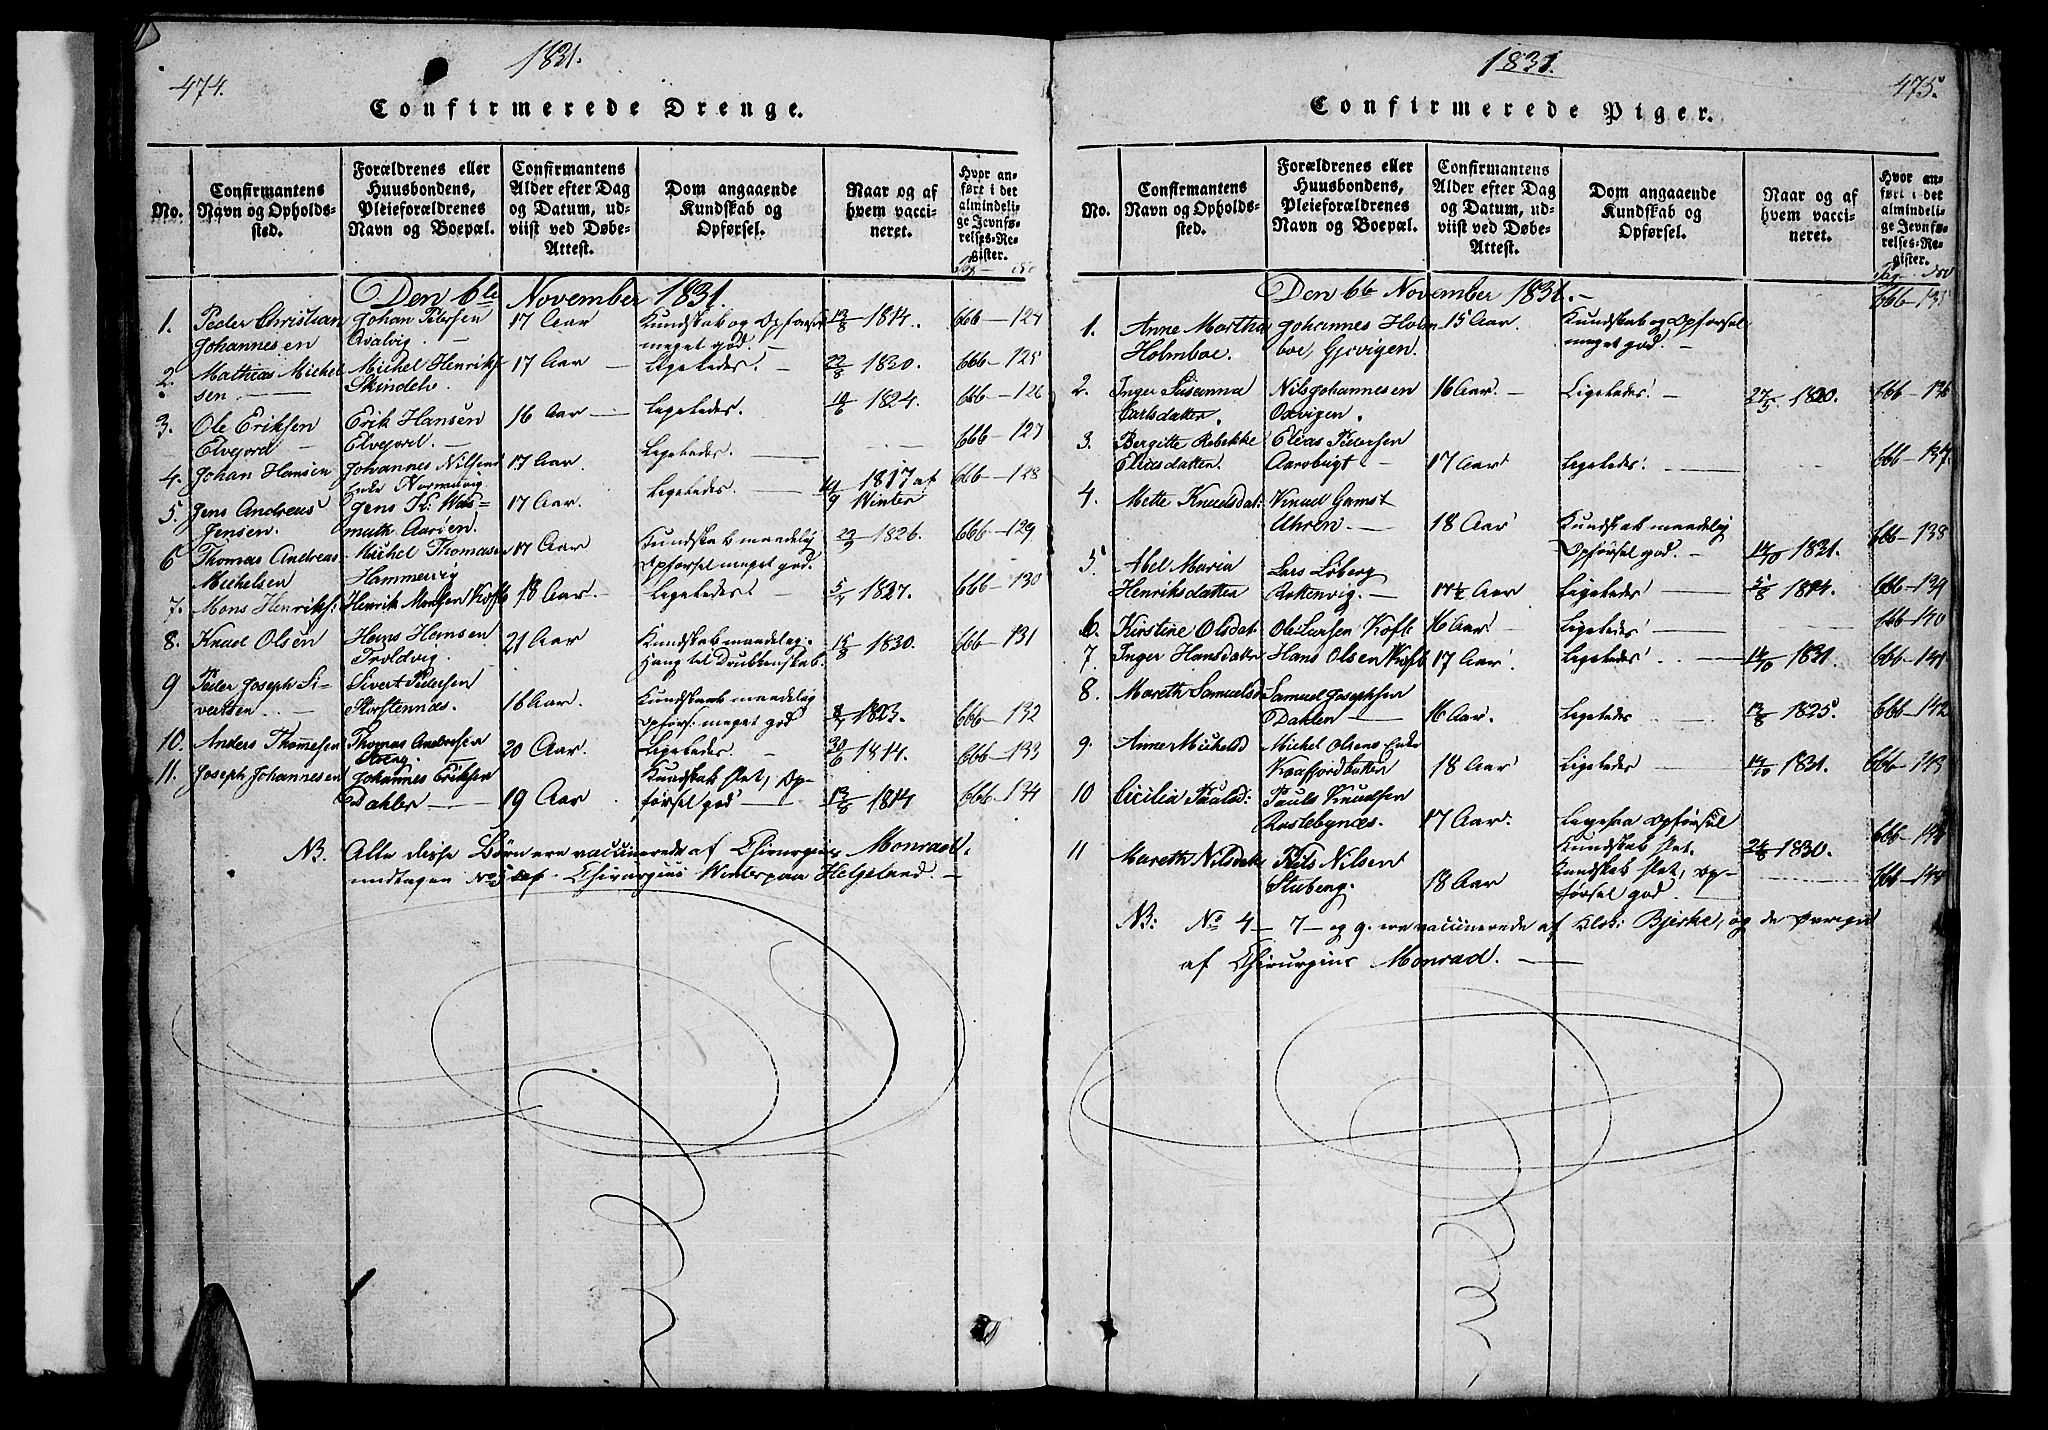 474.
1831.
Confirmerede Drenge.
No.
Confirmantens Navn og Opholds-sted.
Forældrenes eller Huusbondens, Pleieforældrenes Navn og Boepæl.
Confirmantens Alder efter Dag og Datum, ud-viist ved Døbe-Attest.
Dom angaaende Kundskab og Opførsel.
Naar og af hvem vacci-neret.
Hvor an-ført i det almindeli-ge Jevnfø-relses-Re-gister.
Den 6te November 1831.
1. Peder Christian Johannesen Johan Petersen 17 Aar Kundskab og Opførsel meget god. 13/8 1814. 666-124
2. Mathias Michel sen Michel Henriks Skindelv. 17 Aar Ligeledes. 22/8 1830. 666-125
3. Ole Eriksen Elvejord Erik Hansen Elvejord. 16 Aar Ligeledes. 1824. 666-126
4. Johan Hansen Johannes Nilsens Enke 17 Aar Ligeledes. 666-127
5. Jens Andreas Jensen. Jens K: Was-muth Aarøen. 17 Aar. Ligeledes. 1817 af Winter 666-128
6 Thomas Andreas Michelsen Michel Thomasen Hammervig 17 Aar Kundskab maadelig Opførsel meget god. 1826. 666-129
7. Mons Henriks: Henrik Monsen Kofl 18 Aar. Ligeledes. 1827. 666-130
8. Knud Olsen Hans Hansen Troldvig. 21 Aar Kundskab maadelig. Hang til Drukkenskab 15/8 1830. 666-131
9 Peder Joseph Si-vertsen Sivert Pedersen Storstennæs. 18 Aar. Kundskab maadelig opførs: meget god 1823. 666-132
10. Anders Thomesen Thomas Andersen 20 Aar. Ligeledes. 1814. 666-133
11. Joseph Johannesen Johannes Eriksen Dahlen 19 Aar Kundskab slet, Op-førsel god 13/8 1814 666-134
NB. Alle disse Børn ere vaccinerede af Chirurgius Monrad,
undtagen No 5 af Chirurgius Winter paa Helgeland.
1831.
475.
Confirmerede Piger.
No.
Confirmantens Navn og Opholds-sted.
Forældrenes eller Huusbondens, Pleieforældrenes Navn og Boepæl.
Confirmantens Alder efter Dag og Datum, ud-viist ved Døbe-Attest.
Dom angaaende Kundskab og Opførsel.
Naar og af hvem vacci-neret.
Hvor an-ført i det almindeli-ge Jevnfø-relses-Re-gister.
Den 6te November 1831.
1. Anne Martha Holmboe. Johannes Holm-boe, Gjevigen. 15 Aar. Kundskab og Opførsel meget god. 666-135
2. Inger Susanna Carlsdatter. Nils Johannesen Oxvigen. 16 Aar. Ligeledes. 27/5 1820. 666-136
3. Bergitte Rebekke Eliasdatter. Elias Pedersen Aarsbugt 17 Aar Ligeledes. 666-137
4. Mette Knudsdat: Knud Gamst Uhren. 18 Aar Kundskab maadelig Opførsel god. 14/10 1831. 666-138
5. Abel Maria Henriksdatter Lars Løberg Rottenvig. 17½ Aar Ligeledes 1824. 666-139
6. Kirstine Olsdat Ole Larsen Kofl 16 Aar. Ligeledes 666-140
7. Inger Hansdatter Hans Olsen Kofl 17 Aar. Ligeledes. 14/10 1831. 666-141
8. Mareth Samuelsd Samuel Josephsen Dahlen 16 Aar. Ligeledes 13/8 1825. 666-142
9. Anne Michelsd Michel Olsens Enke Kaafjordbotten 18 Aar Ligeledes 14/10 1831. 666-143
10 Cicilia Paulsd: Paul Knudsen Rostebynæs. 17 Aar. Ligesaa Opførsel Kundskab slet. 1830. 666-144
11 Mareth Nilsdatter Nils Nilsen Stuberg. 18 Aar Kundskab slet, Op-førsel god 666-145
NB: No 4 - 7 - og 9. ere vaccinerede af Klok: Bjerke, og de øvrige
af Chirurgius Monrad.